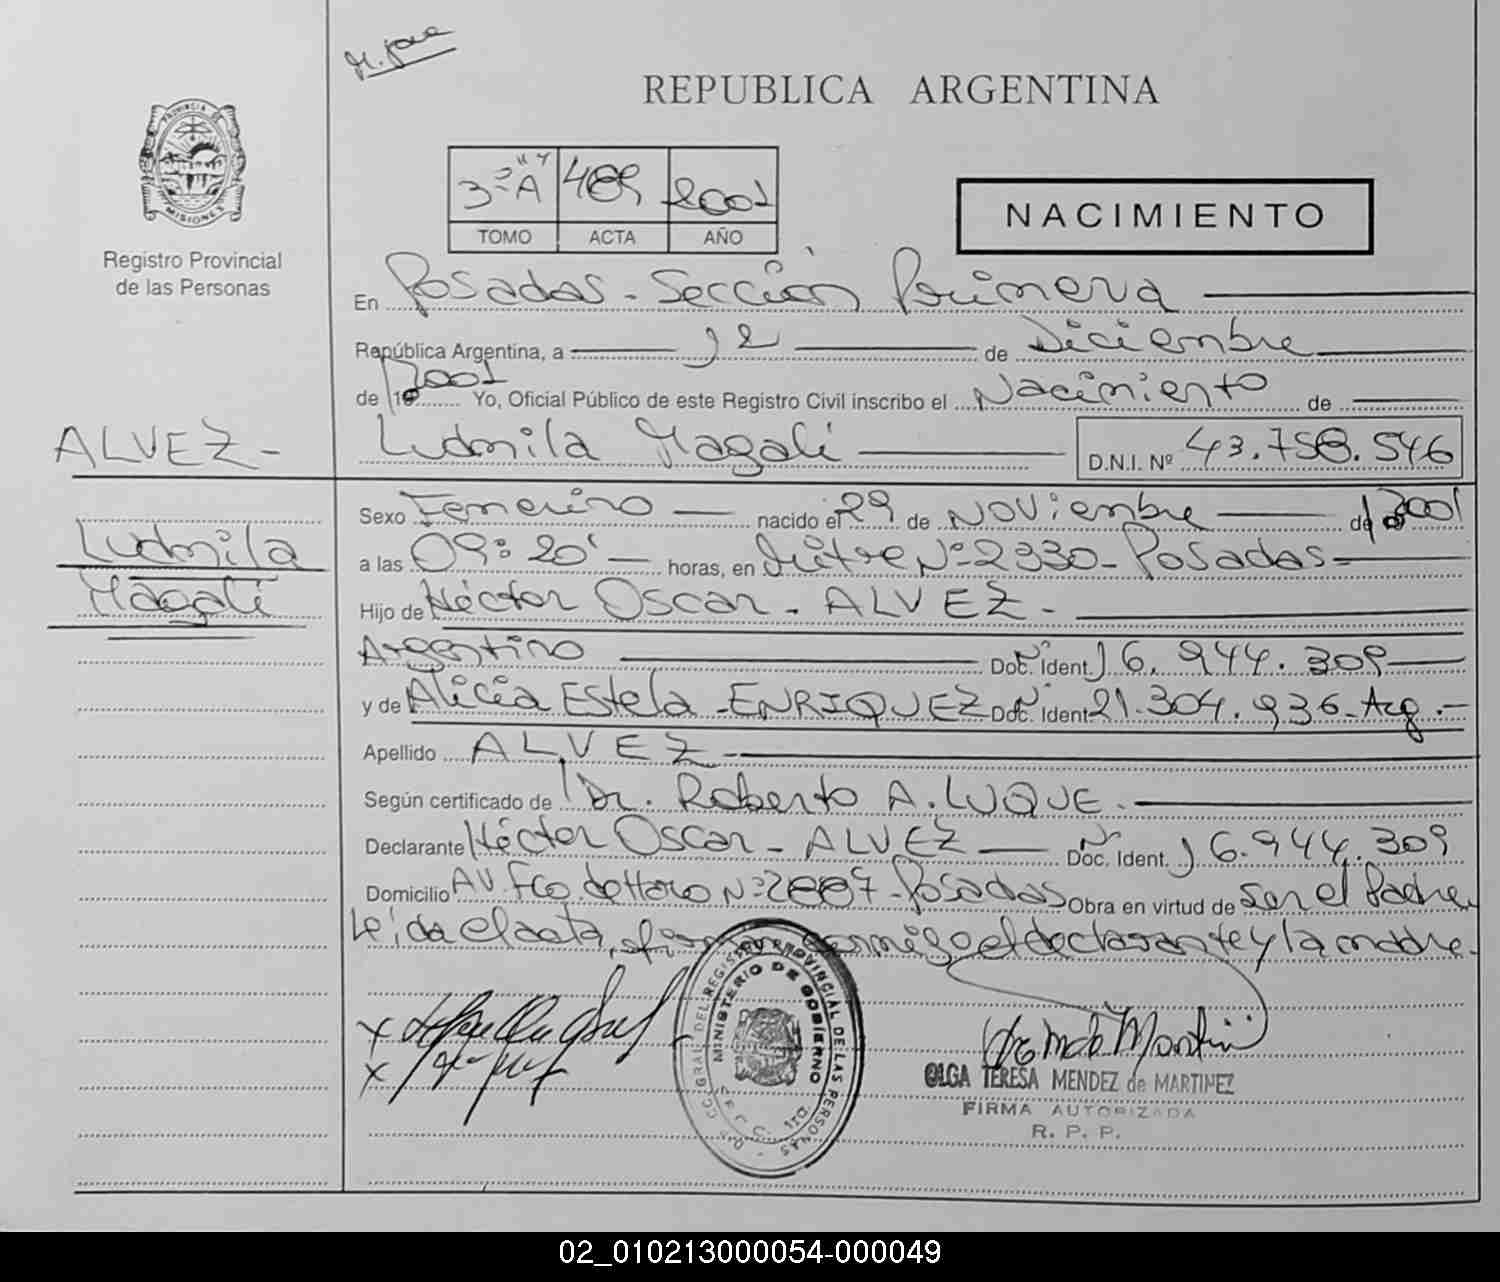 REPUBLICA ARGENTINA
PROVINCIA DE
MISIONES
Registro Provincial
de las Personas
3º "A" 489 2001
TOMO ACTA AÑO
NACIMIENTO
En Posadas - Sección Primera
República Argentina, a 12 de Diciembre
de 2001 Yo, Oficial Público de este Registro Civil inscribo el Nacimiento de
ALVEZ - Ludmila Magalí D.N.I. Nº 43.758.546
Ludmila
Magalí
Sexo Femenino nacido el 29 de Noviembre de 2001
a las 09:20' horas, en Mitre Nº 2330 - Posadas -
Hijo de Héctor Oscar - ALVEZ -
Argentino Doc. Ident. Nº 16.944.309
y de Alicia Estela - ENRIQUEZ Doc. Ident. Nº 21.304.936 - Arg. -
Apellido ALVEZ -
Según certificado de Dr. Roberto A. LUQUE. -
Declarante Héctor Oscar - ALVEZ Doc. Ident. Nº 16.944.309
Domicilio AV. Fco. de Haro Nº Posadas Obra en virtud de ser el Padre
Leída el acta, firman conmigo el declarante y la madre. -
MINISTERIO DE GOBIERNO
DEL REGISTRO PROVINCIAL DE LAS PERSONAS
OLGA TERESA MENDEZ de MARTINEZ
FIRMA AUTORIZADA
R. P. P.
02_010213000054-000049